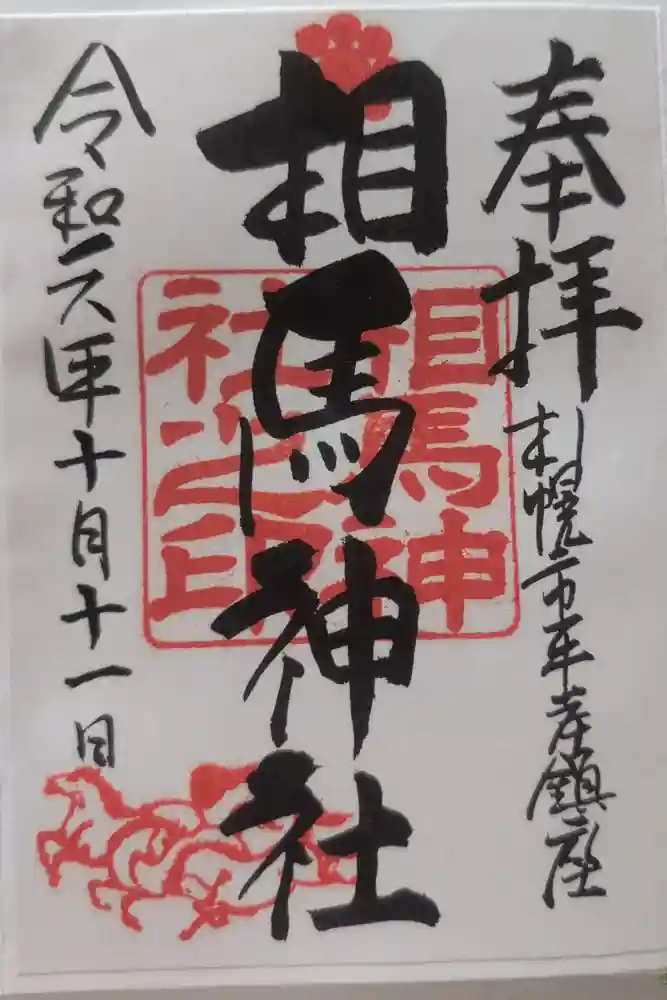 奉拝
札幌市平岸鎮座
相馬神社
相馬神
社之印
令和六年十月十一日